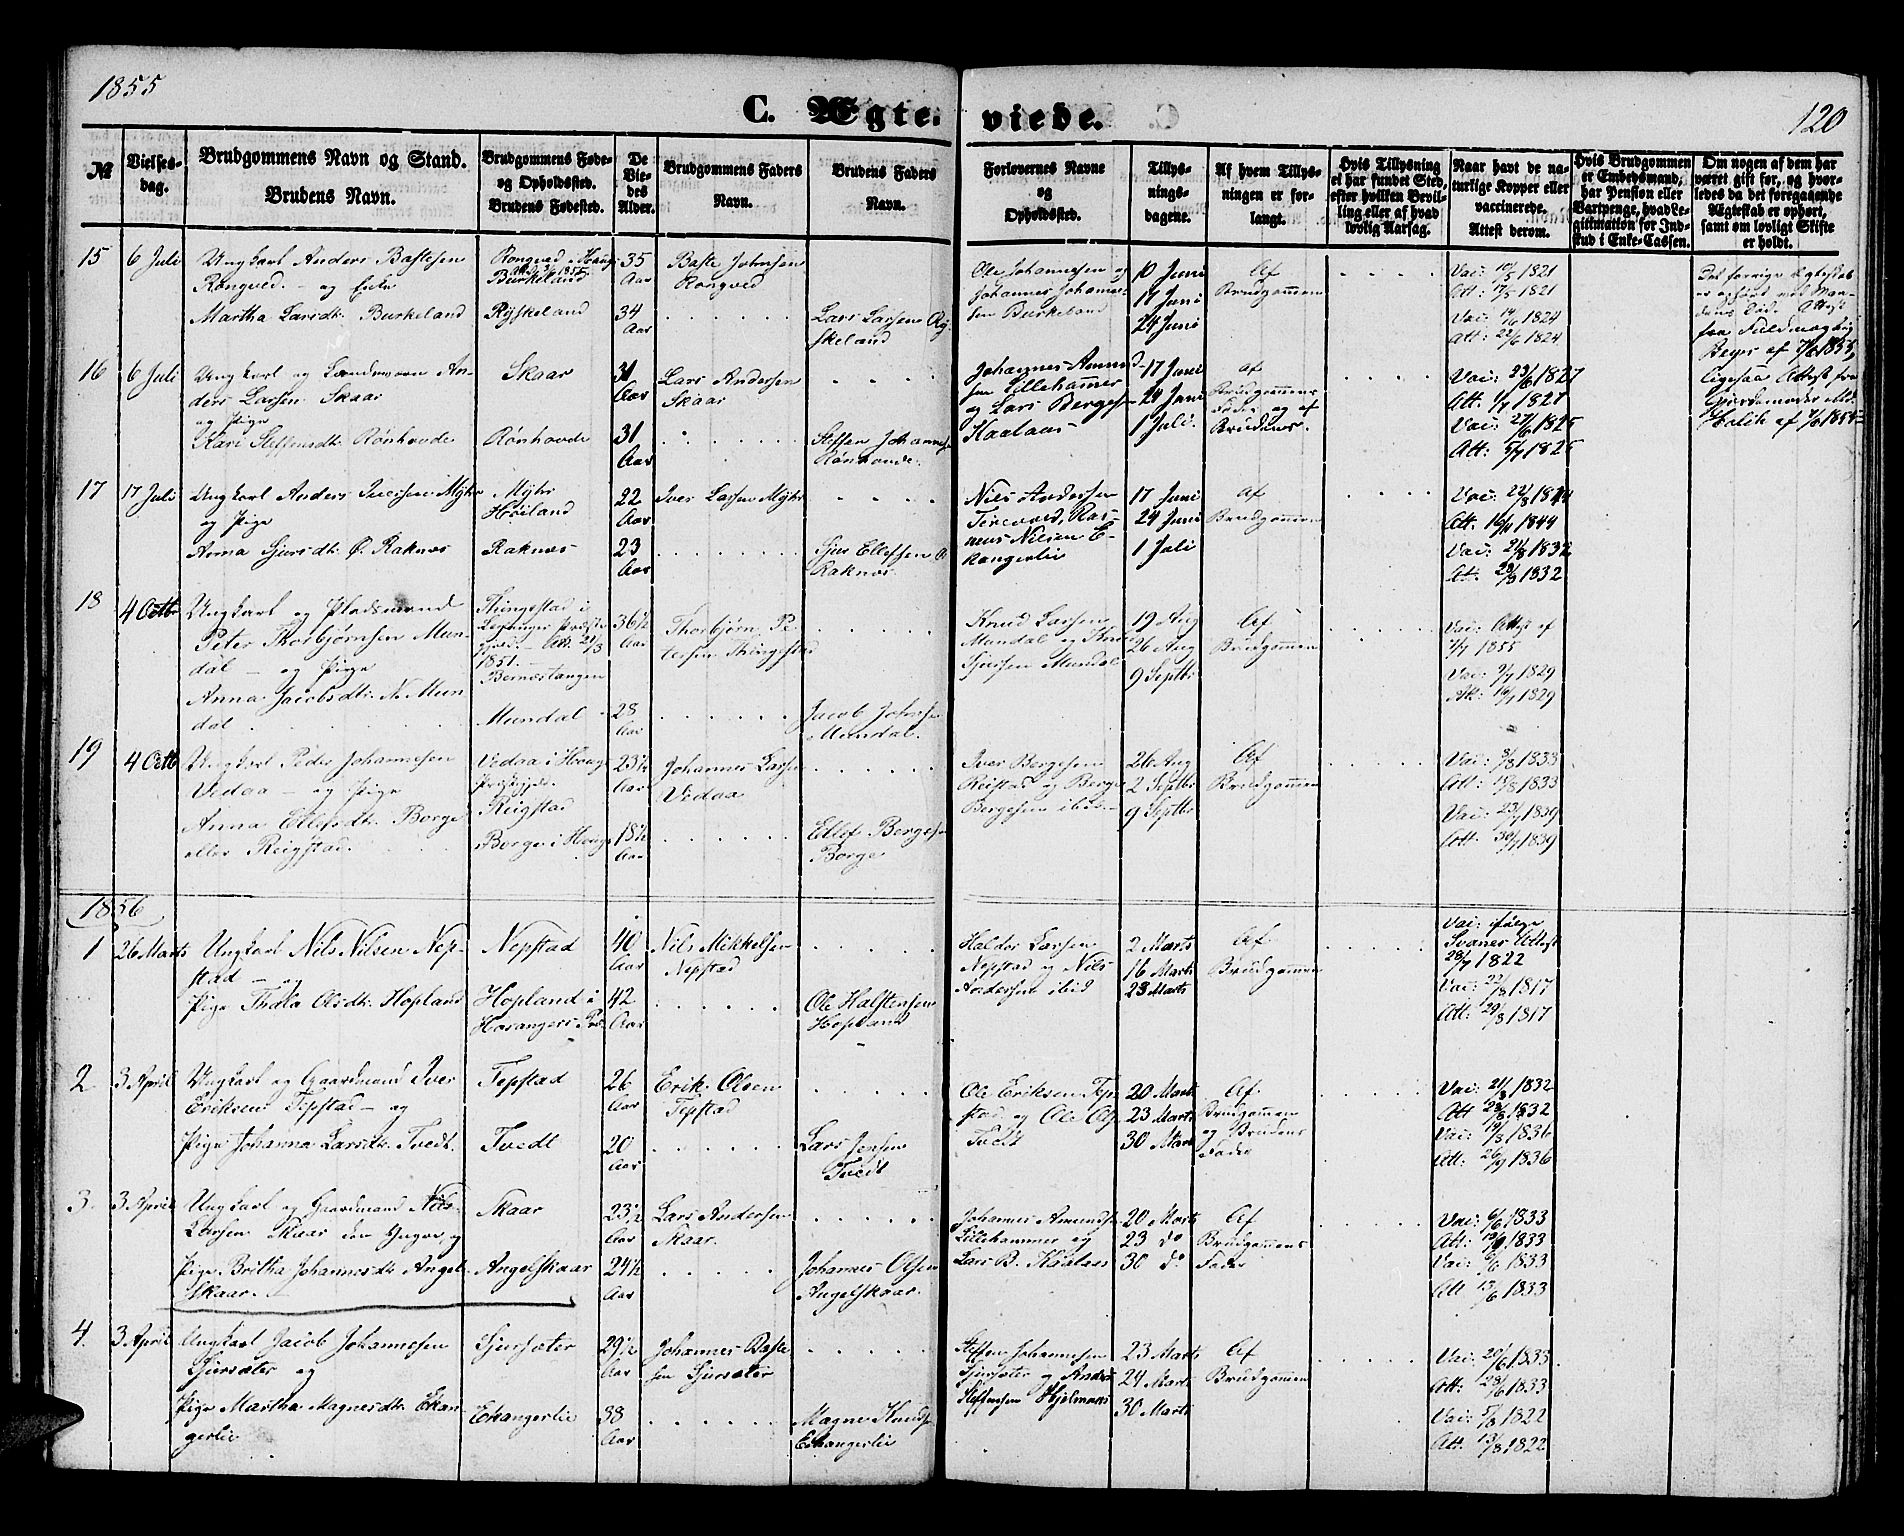 1855
120
C. Ægteviede.
No
Vielses-
dag.
Brudgommens Navn og Stand.
Brudens Navn.
Brudgommens Føde-
og Opholdssted.
Brudens Fødested.
De
Vie-
des
Alder.
Brudgommens Faders
Navn.
Brudens Faders
Navn.
Forlovernes Navne
og
Opholdssted.
Tillys-
nings-
dagene.
Af hvem Tillys-
ningen er for-
langt.
Hvis Tillysning
ei har fundet Sted,
efter hvilken Bevil-
ling eller af hvad
lovlig Aarsag.
Naar havt de na-
turlige Kopper eller
vaccinerede.
Attest derom.
Hvis Brudgommen
er Embedsmand,
har Pension eller
Vartpenge, hvad Le-
gitimation for Ind-
skud i Enke-Cassen.
Om nogen af dem har
været gift før, og hvor-
ledes da det foregaaende
Ægteskab er ophørt,
samt om lovligt Skifte
er holdt.
15
6 Juli
Ungkarl Anders Bastesen
Rongved. – og Enke
Martha Larsdtr. Burkeland
Rongved i Houg
Burkeland
Ryskeland
35
Aar
34
Aar
Baste Johnsen
Rongved
Lars Larsen Ry-
skeland
Ole Johannesen og
Johannes Johanne-
sen Burkeland
10 Juni
17 Juni
24 Juni
Af
Brudgommen
Vac: 10/5 1821
Att: 17/5 1821
Vac: 14/6 1824
Att: 22/6 1824
Det forrige Ægteskab
er ophørt ved Man-
dens Død. Attest
fra Fuldmægtig
Beyer af 7/6 1855,
ligesaa Attest fra
16
6 Juli
Ungkarl og Landmann An-
ders Larsen Skaar
og Pige
Kari Steffensdtr. Rønhovde
Skaar
Rønhovde
31
Aar
31
Aar
Lars Andersen
Skaar
Steffen Johannese
Rønhovde.
Johannes Amund-
sen Lillehammer
og Lars Bergesen
Haalaas
17 Juni
24 Juni
1 Juli.
af
Brudgommens
Fader og af
Brudens.
Vac: 23/6 1827
Att. 1/7 1827
Vac: 27/6 1825
Att: 5/7 1825
17
17 Juli
Ungkarl Anders Iversen Myhr
og Pige
Anna Sjursdtr. Ø. Raknæs
Myhr
Høiland
Raknæs
22
Aar
23
Aar
Iver Larsen Myhr
Sjur Ellefsen Ø.
Raknæs.
Nils Andersen
Ras-
mus Nilsen E-
kangerlie
17 Juni
24 Juni
1 Juli
af
Brudgommen
Vac: 22/8 1844
Att. 16/11 1844
Vac: 21/8 1832
At: 28/8 1832
18
4 Octbr
Ungkarl og Pladsmand
Peter Thorbjørnsen Mun-
dal – og Pige
Anna Jacobsdtr. N. Mun-
dal
Thingstad i
Leganger Præste-
gjeld. – Att. 21/3
1851. –
Bernestangen
Mundal
36½
Aar
28
Aar
Thorbjørn Pe-
tersen Thingestad
Jacob Johnsen
Mundal.
Knud Larsen
Mundal og Knud
Sjursen Mundal
19 Aug
26 Aug
9 Septbr
Af
Brudgommen
Vac: Attest af
1855
Vac: 9/7 1829
Att: 16/7 1829
19
4 Octb
Ungkarl Peder Johannesen
Vedaa – og Pige
Anna Ellefsdtr. Borge
eller Reigstad.
Vedaa i Houg
Præstegjeld.
Reigstad
Borge i Houg
23½
Aar
18½
Aar
Johannes Larsen
Vedaa
Ellef Bergesen
Borge
Iver Bergesen
Reistad og Berge
Bergesen ibid
26 Aug
2 Septbr
9 Septbr
Af
Brudgommen
Vac: 8/8 1833
Att: 15/8 1833
Vac: 23/7 1839
Att. 30/7 1839
1856
1
26 Marts
Ungkarl Nils Nilsen Nep-
stad – og
Pige Thala Olsdtr. Hopland
Nepstad
Hopland i
Hosangers Præ.
40
Aar
42
Aar
Nils Mikkelsen
Nepstad
Ole Halstensen
Hopland
Haldor Larsen
Nepstad og Nils
Andersen ibid
2 Marts
16 Marts
23 Marts
Af
Brudgommen
Vac: ifølge
Svanes Attest
28/7 1822
Vac: 22/8 1817
Att: 29/8 1817
2
3 April
Ungkarl og Gaardmand Iver
Eriksen Tepstad – og
Pige Johanna Larsdtr. Tvedt.
Tepstad
Tvedt
26
Aar
20
Aar
Erik Olsen
Tepstad
Lars Jensen
Tvedt
Ole Eriksen Tep-
stad og Ole Ols.
Tvedt
20 Marts
23 Marts
30 Marts
Af
Brudgommen
og Brudens
Fader
Vac: 21/8 1832
Att 28/8 1832
Vac: 19/8 1836
Att: 26/9 1836
3.
3 April
Ungkarl og Gaardmand Nils
Larsen Skaar den Yngre, og
Pige Britha Johannesdtr. Angel-
skaar.
Skaar
Angelskaar
23½
Aar
24½
Aar
Lars Andersen
Skaar.
Johannes Olsen
Angelskaar.
Johannes Amundse
Lillehammer og
Lars B. Haalaas
20 Marts
23 do
30 do
Af
Brudgommens
Fader
Vac: 6/6 1833
Att: 13/9 1833
Vac: 6/6 1833
Att 13/6 1833
4.
3 April
Ungkarl Jacob Johannesen
Sjursæter og
Pige Martha Magnesdtr. Ekan-
gerlie
Sjursæter
Ekangerlie
29½
Aar
38
Aar
Johannes Baste-
sen Sjursæter
Magne Knuds.
Ekangerlie
Steffen Johannesen
Sjursæter og Anders
Steffensen Hjelmaas
23 Marts
24 Marts
30 Marts
Af
Brudgommen
Vac: 20/6 1833.
Att: 28/6 1833
Vac: 5/8 1822
Att. 13/8 1822